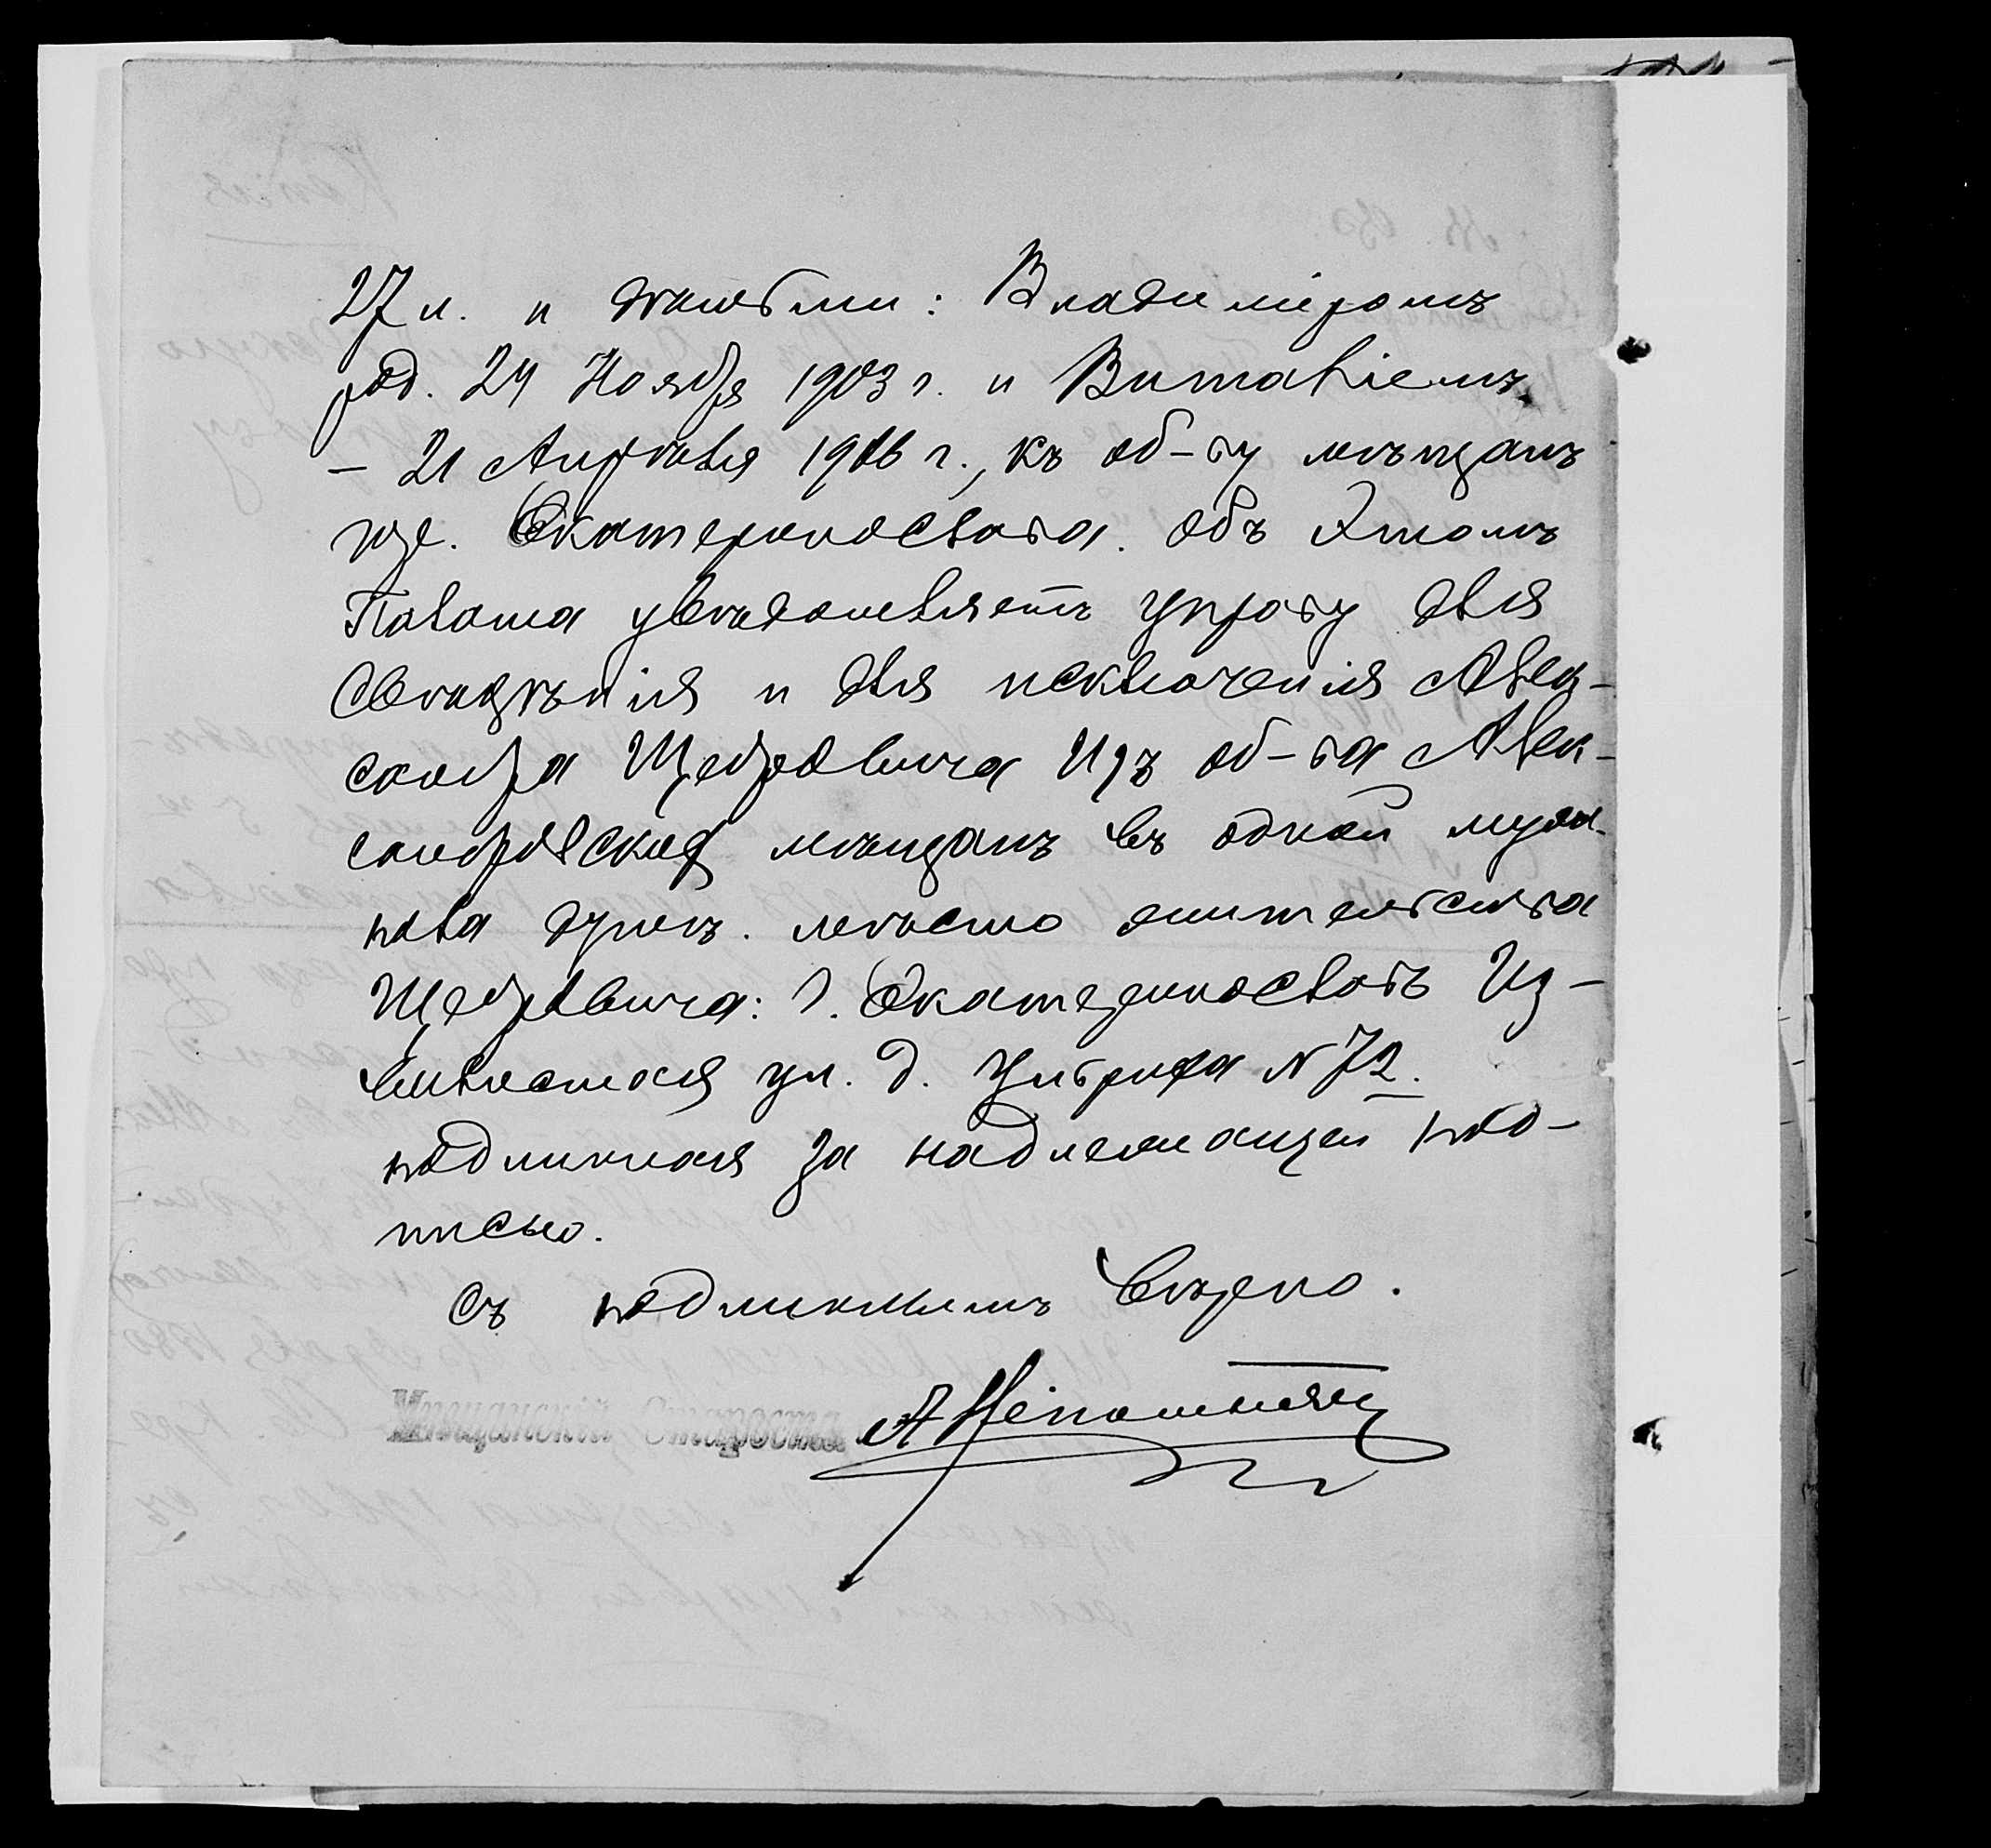 27 л. и дѣтьми: Владиміромъ
род. 24 Ноября 1903 г. и Виталіемъ
– 21 Апрѣля 1906 г., къ об-ву мѣщанъ
гор. Екатеринослава. Объ этомъ
Палата увѣдомляетъ управу для
свѣдѣнія и для исключенія Алек-
сандра Щедровича изъ об-ва Алек-
сандровских мѣщанъ въ одной муж.
пола душѣ. Мѣсто жительства
Щедровича: г. Екатеринославъ Из-
вилистая ул. д. № 72.
подлинная за надлежащей под-
писью.
Съ подлиннымъ вѣрно.
Мѣщанскій Староста